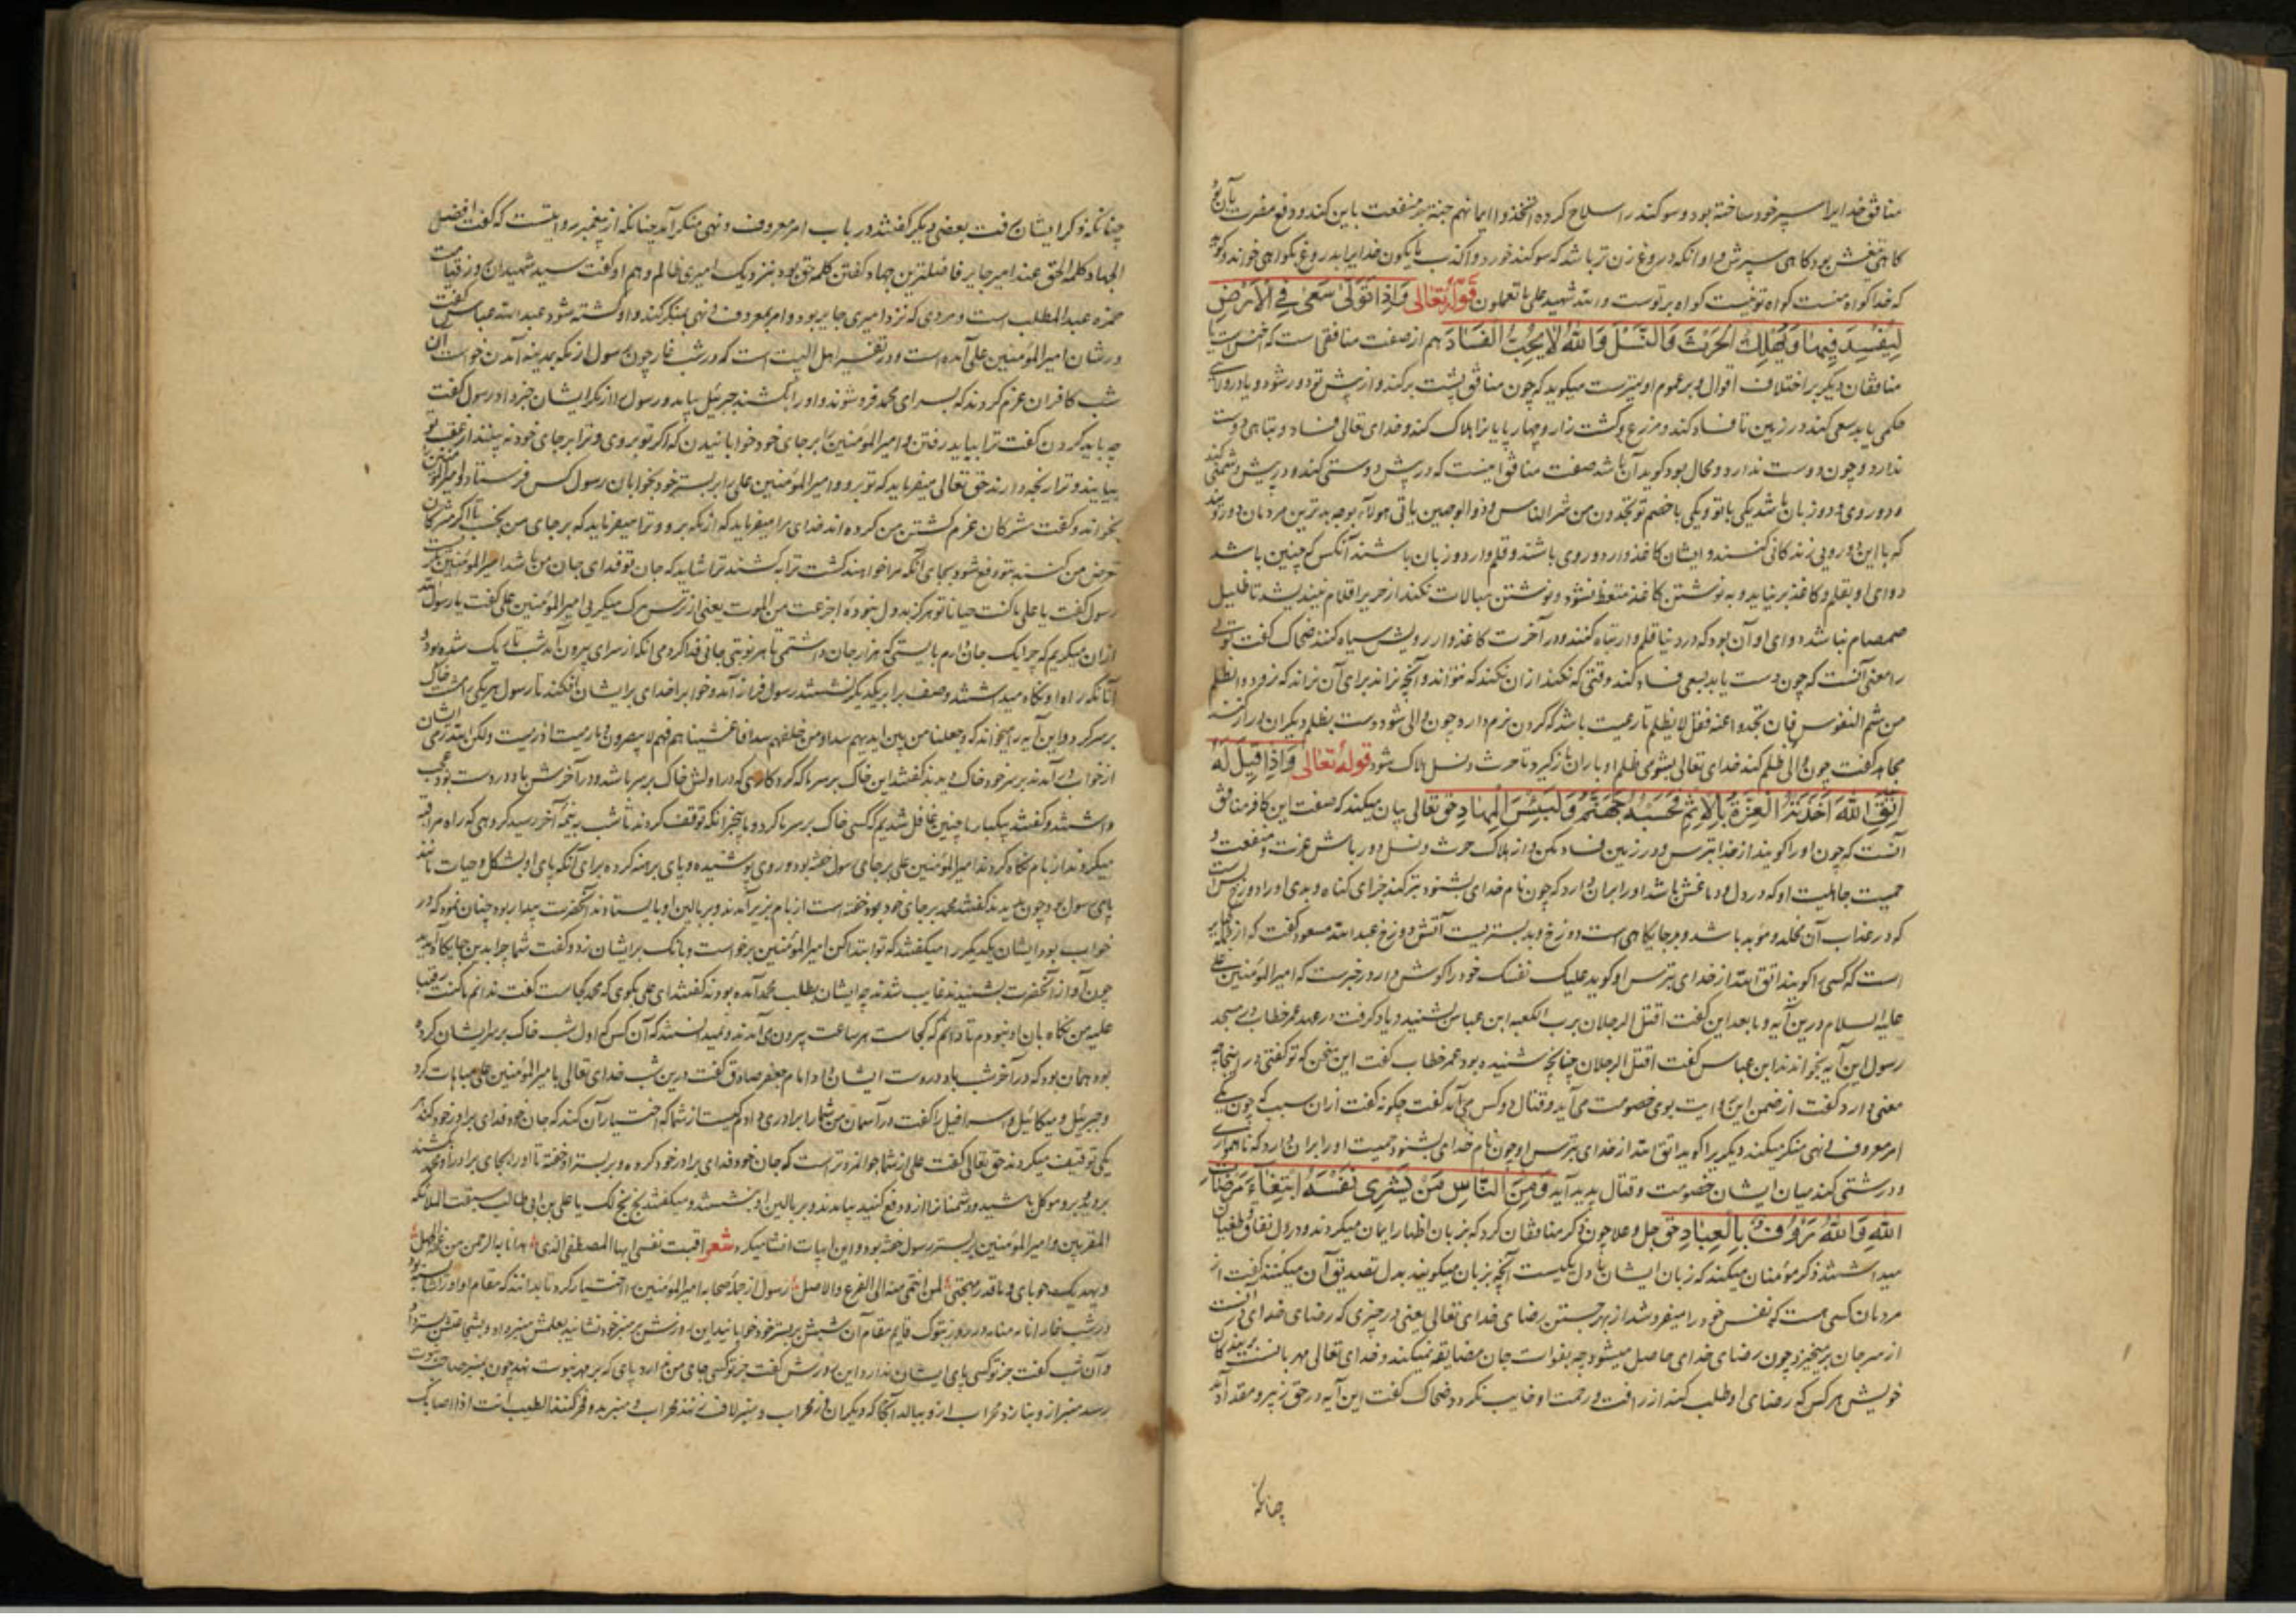 منافق خدایرا سپر خود ساخته بود و سوکند را سلاح کرده اتخذوا ایمانهم جنة جر منفعت باین کند و دفع مضرت بآن
که خدا کواه منست کواه تو نیست کواه بر توست والله شهید علی ما تعملون قوله تعالی وَاِذَا تَوَلّٰی سَعٰی فِی الْاَرْضِ
لِیُفْسِدَ فِیهَا وَیُهْلِكَ الْحَرْثَ وَالنَّسْلَ وَاللهُ لَا یُحِبُّ الْفَسَادَ هم از صفت منافقی است که
منافقان دیکر بر اختلاف اقوال و بر عموم اولیترست میکوید که چون منافق پشت برکند و از پیش تو دور شود و یا در ولای
حکمی یابد سعی کند در زمین تا فساد کند و مزرع و کشت زار و چهارپایانرا هلاک کند و خدای تعالی فساد و تباهی دوست
ندارد و چون دوست ندارد و محال بود کوید آن باشد صفت منافق اینست که در پیش دوستی کند و در پس دشمنی کند
که با این دورویی زندکانی کنند و ایشان کاغذ وار دوروی باشند و قلم وار دو زبان باشند آنکس که چنین باشد
دوای او بقلم و کاغذ برنیاید و به نوشتن کاغذ متعظ نشود و نوشتن مبالات نکند از حریر اقلام نیندیشد تا ظلیل
صمصام نباشد دوای او آن بود که در دنیا قلم وار تباه کنند و در آخرت کاغذ وار رویش سیاه کنند ضحاک کفت تولی
را معنی آنست که چون دست یابد بسعی فساد کند وقتی که نکند از آن نکند که نتواند و آنچه نراند برای آن نراند که نرود والظلم
من شیم النفوس فان تجد ذا عفة فلعلة لا یظلم تا رعیت باشد کردن نرم دارد و چون والی شود دست بظلم دیکران دراز کند
مجاهد کفت چون والی ظلم کند خدای تعالی بشومی ظلم او باران بازکیرد تا حرث و نسل هلاک شود قوله تعالی وَاِذَا قِیلَ لَهُ
اتَّقِ اللهَ اَخَذَتْهُ الْعِزَّةُ بِالْاِثْمِ فَحَسْبُهُ جَهَنَّمُ وَلَبِئْسَ الْمِهَادُ حق تعالی بیان میکند که صفت این کافر منافق
آنست که چون او را کویند از خدا بترس و در زمین فساد مکن و از هلاک حرث و نسل دور باش عزت و منفعت و
حمیت جاهلیت او که در دل و دماغش باشد او را بر آن دارد که چون نام خدای بشنود بتر کند جزای کناه و بدی او را دوزخ بس است
که در عذاب آن مخلد و مؤبد باشد و بد جایکاهی است دوزخ و بد بستریست آتش دوزخ عبدالله مسعود کفت که از جمله کبایر
است که کسی را کویند اتق الله از خدای بترس او کوید علیک نفسک خود را کوش دار و در خبرست که امیرالمؤمنین علی
علیه السلام درین آیه و ما بعد این کفت اقتتل الرجلان برب الکعبه ابن عباس شنید و یاد کرفت در عهد عمر خطاب در مسجد
رسول این آیه بخواندند ابن عباس کفت اقتتل الرجلان چنانچه شنیده بود عمر خطاب کفت این سخن که تو کفتی در اینجا چه
معنی دارد کفت از ضمن این آیت بوی خصومت می آید و قتال دو کس می آید کفت چکونه کفت از آن سبب که چون یکی
امر معروف و نهی منکر میکند و دیکر را کوید اتق الله از خدای بترس او چون نام خدای بشنود حمیت او را بر آن دارد که ناهمواری
و درشتی کند میان ایشان خصومت و قتال پدید آید وَمِنَ النَّاسِ مَنْ یَشْرِی نَفْسَهُ ابْتِغَاءَ مَرْضَاتِ
اللهِ وَاللهُ رَؤُفٌ بِالْعِبَادِ حق جل و علا چون ذکر منافقان کرد که بزبان اظهار ایمان میکردند و در دل نفاق و طغیان
میداشتند ذکر مؤمنان میکند که زبان ایشان با دل یکیست آنچه بزبان میکویند بدل تصدیق آن میکنند کفت از
مردمان کسی هست که نفس خود را میفروشد از بهر جستن رضای خدای تعالی یعنی در چیزی که رضای خدای در آنست
از سر جان برمیخیزد چون رضای خدای حاصل میشود جه بفوات جان مضایقه نمیکند و خدای تعالی مهربانست بر بندکان
خویش هر کس که رضای او طلب کند از رافت و رحمت او خایب نکردد ضحاک کفت این آیه در حق زبیر و مقداد آمد
چنانکه
چنانکه ذکر ایشان رفت بعضی دیکر کفتند در باب امر معروف و نهی منکر آمد چنانکه از پیغمبر روایتست که کفت افضل
الجهاد کلمة الحق عند امیر جایر فاضلترین جهاد کفتن کلمه حق بود بنزدیک امیری ظالم و هم او کفت سید شهیدان روز قیامت
حمزه عبدالمطلب است و مردی که نزد امیری جایر بود و امر بمعروف و نهی منکر کند و او کشته شود عبدالله عباس کفت
در شان امیرالمؤمنین علی آمده است و در تفسیر اهل البیت است که در شب غار چون رسول از مکه بمدینه آمدن خواست آن
شب کافران عزم کردند که بسرای محمد فرو شوند و او را بکشند جبرئیل بیامد و رسول را از مکر ایشان خبر داد رسول کفت
چه باید کردن کفت ترا بباید رفتن و امیرالمؤمنین را بر جای خود خوابانیدن که اکر تو بروی و ترا بر جای خود نه بینند از عقب تو
بیایند و ترا رنجه دارند حق تعالی میفرماید که تو برو و امیرالمؤمنین علی را بر بستر خود بخوابان رسول کس فرستاد و امیرالمؤمنین را
بخواند و کفت مشرکان عزم کشتن من کرده اند خدای مرا میفرماید که از مکه برو و ترا میفرماید که بر جای من بخسب تا اکر مشرکان
رسول کفت یا علی ما کنت جبانا تو هرکز بددل نبوده اجزعت من الموت یعنی از ترس مرک میکریی امیرالمؤمنین علی کفت یا رسول الله
از آن میکریم که چرا یک جان دارم بایستی که هزار جان داشتمی تا هر نوبتی جانی فدا کردمی آنکه از سرای بیرون آمد شب تاریک شده بود و
آنانکه راه او نکاه میداشتند و صف برابر یکدیکر نشستند رسول فراز آمد و خواب را خدای بر ایشان افکند تا رسول هر یکی را مشت خاک
بر سر کرد و این آیه را میخواند که وجعلنا من بین ایدیهم سدا ومن خلفهم سدا فاغشیناهم فهم لا یبصرون وما رمیت اذ رمیت ولکن الله رمی ایشان
از خواب در آمدند بر سر خود خاک دیدند کفتند این خاک بر سر ما که کرد کاری که در اولش خاک بر سر باشد و در آخرش باد در دست بود عجب
داشتند و کفتند یکبار ما چنین غافل شدیم که کسی خاک بر سر ما کرد و ما بیخبر آنکه توقف کردند تا شب به نیمه آخر رسید کروهی که راه مراقبه
میکردند از بام نکاه کردند امیرالمؤمنین علی بر جای رسول خفته بود و روی پوشیده و پای برهنه کرده برای آنکه پای او بشکل و حیات مانند
پای رسول بود چون بدیدند کفتند محمد بر جای خود بود خفته است از بام بزیر آمدند و بر بالین او بایستادند آنحضرت بیدار بود چنان نمود که در
خواب بود ایشان یکدیکر را میکفتند که تو ابتدا کن امیرالمؤمنین برخواست و بانک بر ایشان زد و کفت شما چرا بدین جایکاه آمدید
چون آواز آنحضرت بشنیدند غایب شدند چه ایشان بطلب محمد آمده بودند کفتند ای علی بکوی که محمد کجاست کفت ندانم ما کنت رقیبا
علیه من نکاه بان او نبودم تا دانم که کجاست هر ساعت بیرون می آمدند و نمیدانستند که آن کس که اول شب خاک بر سر ایشان کرده
بود همان بود که در آخر شب باد در دست ایشان داد امام جعفر صادق کفت درین شب خدای تعالی بامیرالمؤمنین علی مباهات کرد
و جبرئیل و میکائیل و اسرافیل را کفت در آسمان من شما را برادری دادم کیست از شما که اختیار آن کند که جان خود فدای برادر خود کند هر
یکی توقیف میکردند حق تعالی کفت علی از شما جوانمردتر است که جان خود فدای برادر خود کرده و بر بستر او خفته تا او را بجای برادر او محمد بکشند
بروید برو موکل باشید و دشمنانرا از و دفع کنید بیامدند و بر بالین او بنشستند و میکفتند بخ بخ لک یا علی بن ابی طالب سبقت الملائکه
المقربین و امیرالمؤمنین بر بستر رسول خفته بود و این ابیات انشا میکرد شعر
لمن انتمی منه الی الفرع والاصل رسول از جمله صحابه امیرالمؤمنین را اختیار کرد تا بدانند که مقام او او را شایسته بود
و آن شب کفت جز تو کسی پای ایشان ندارد این روزش کفت جز تو کسی جای من ندارد پای که بر مهر نبوت نهد چون بمنبر صاحب نبوت
رسد منبر ازو بنازد محراب ازو ببالد آنجا که دیکران از محراب و منبر لاف زنند محراب و منبر بدو فخر کنند